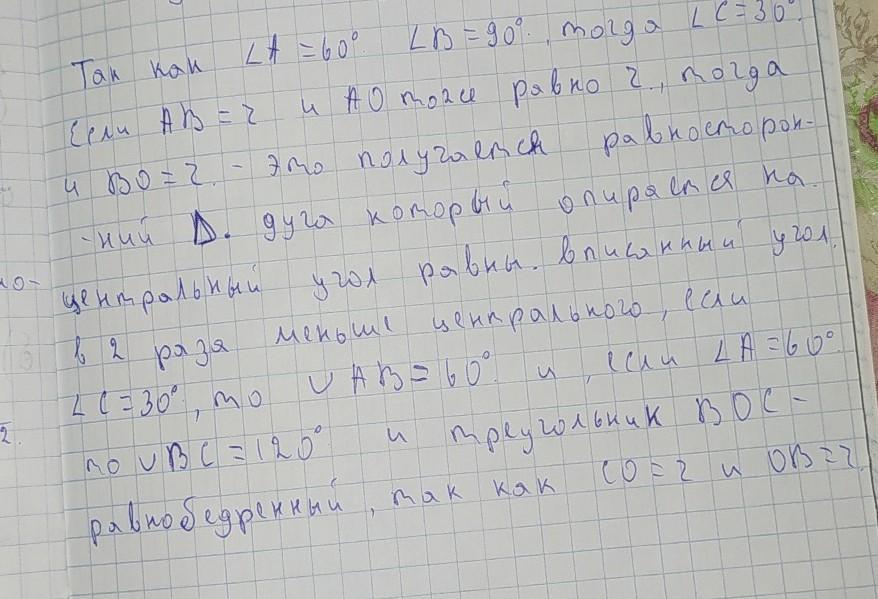 Так как ∠A = 60° ∠B = 90°, тогда ∠C = 30°.
Если AB = r и AO тоже равно r, тогда
и BO = r. - Это получается равносторон-
-ний Δ. дуга который опирается на
центральный угол равны. Вписанный угол
в 2 раза меньше центрального, если
∠C = 30°, то ∪AB = 60° и, если ∠A = 60°
то ∪BC = 120° и треугольник BOC -
равнобедренный, так как CO = r и OB = r